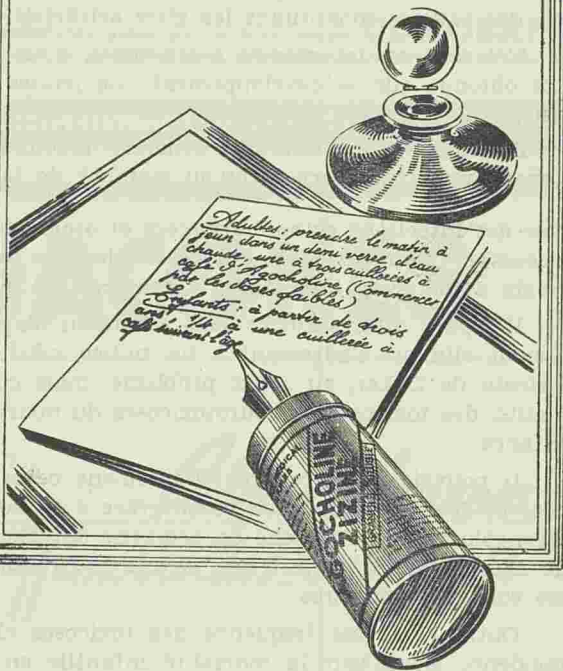 Adultes : prendre le matin à
jeun dans un demi verre d'eau
chaude, une à trois cuillerées à
café d'Agocholine (Commencer
par les doses faibles)
Enfants : à partir de trois
ans : 1/4 à une cuillerée à
café suivant l'âge
AGOCHOLINE
ZIZINE